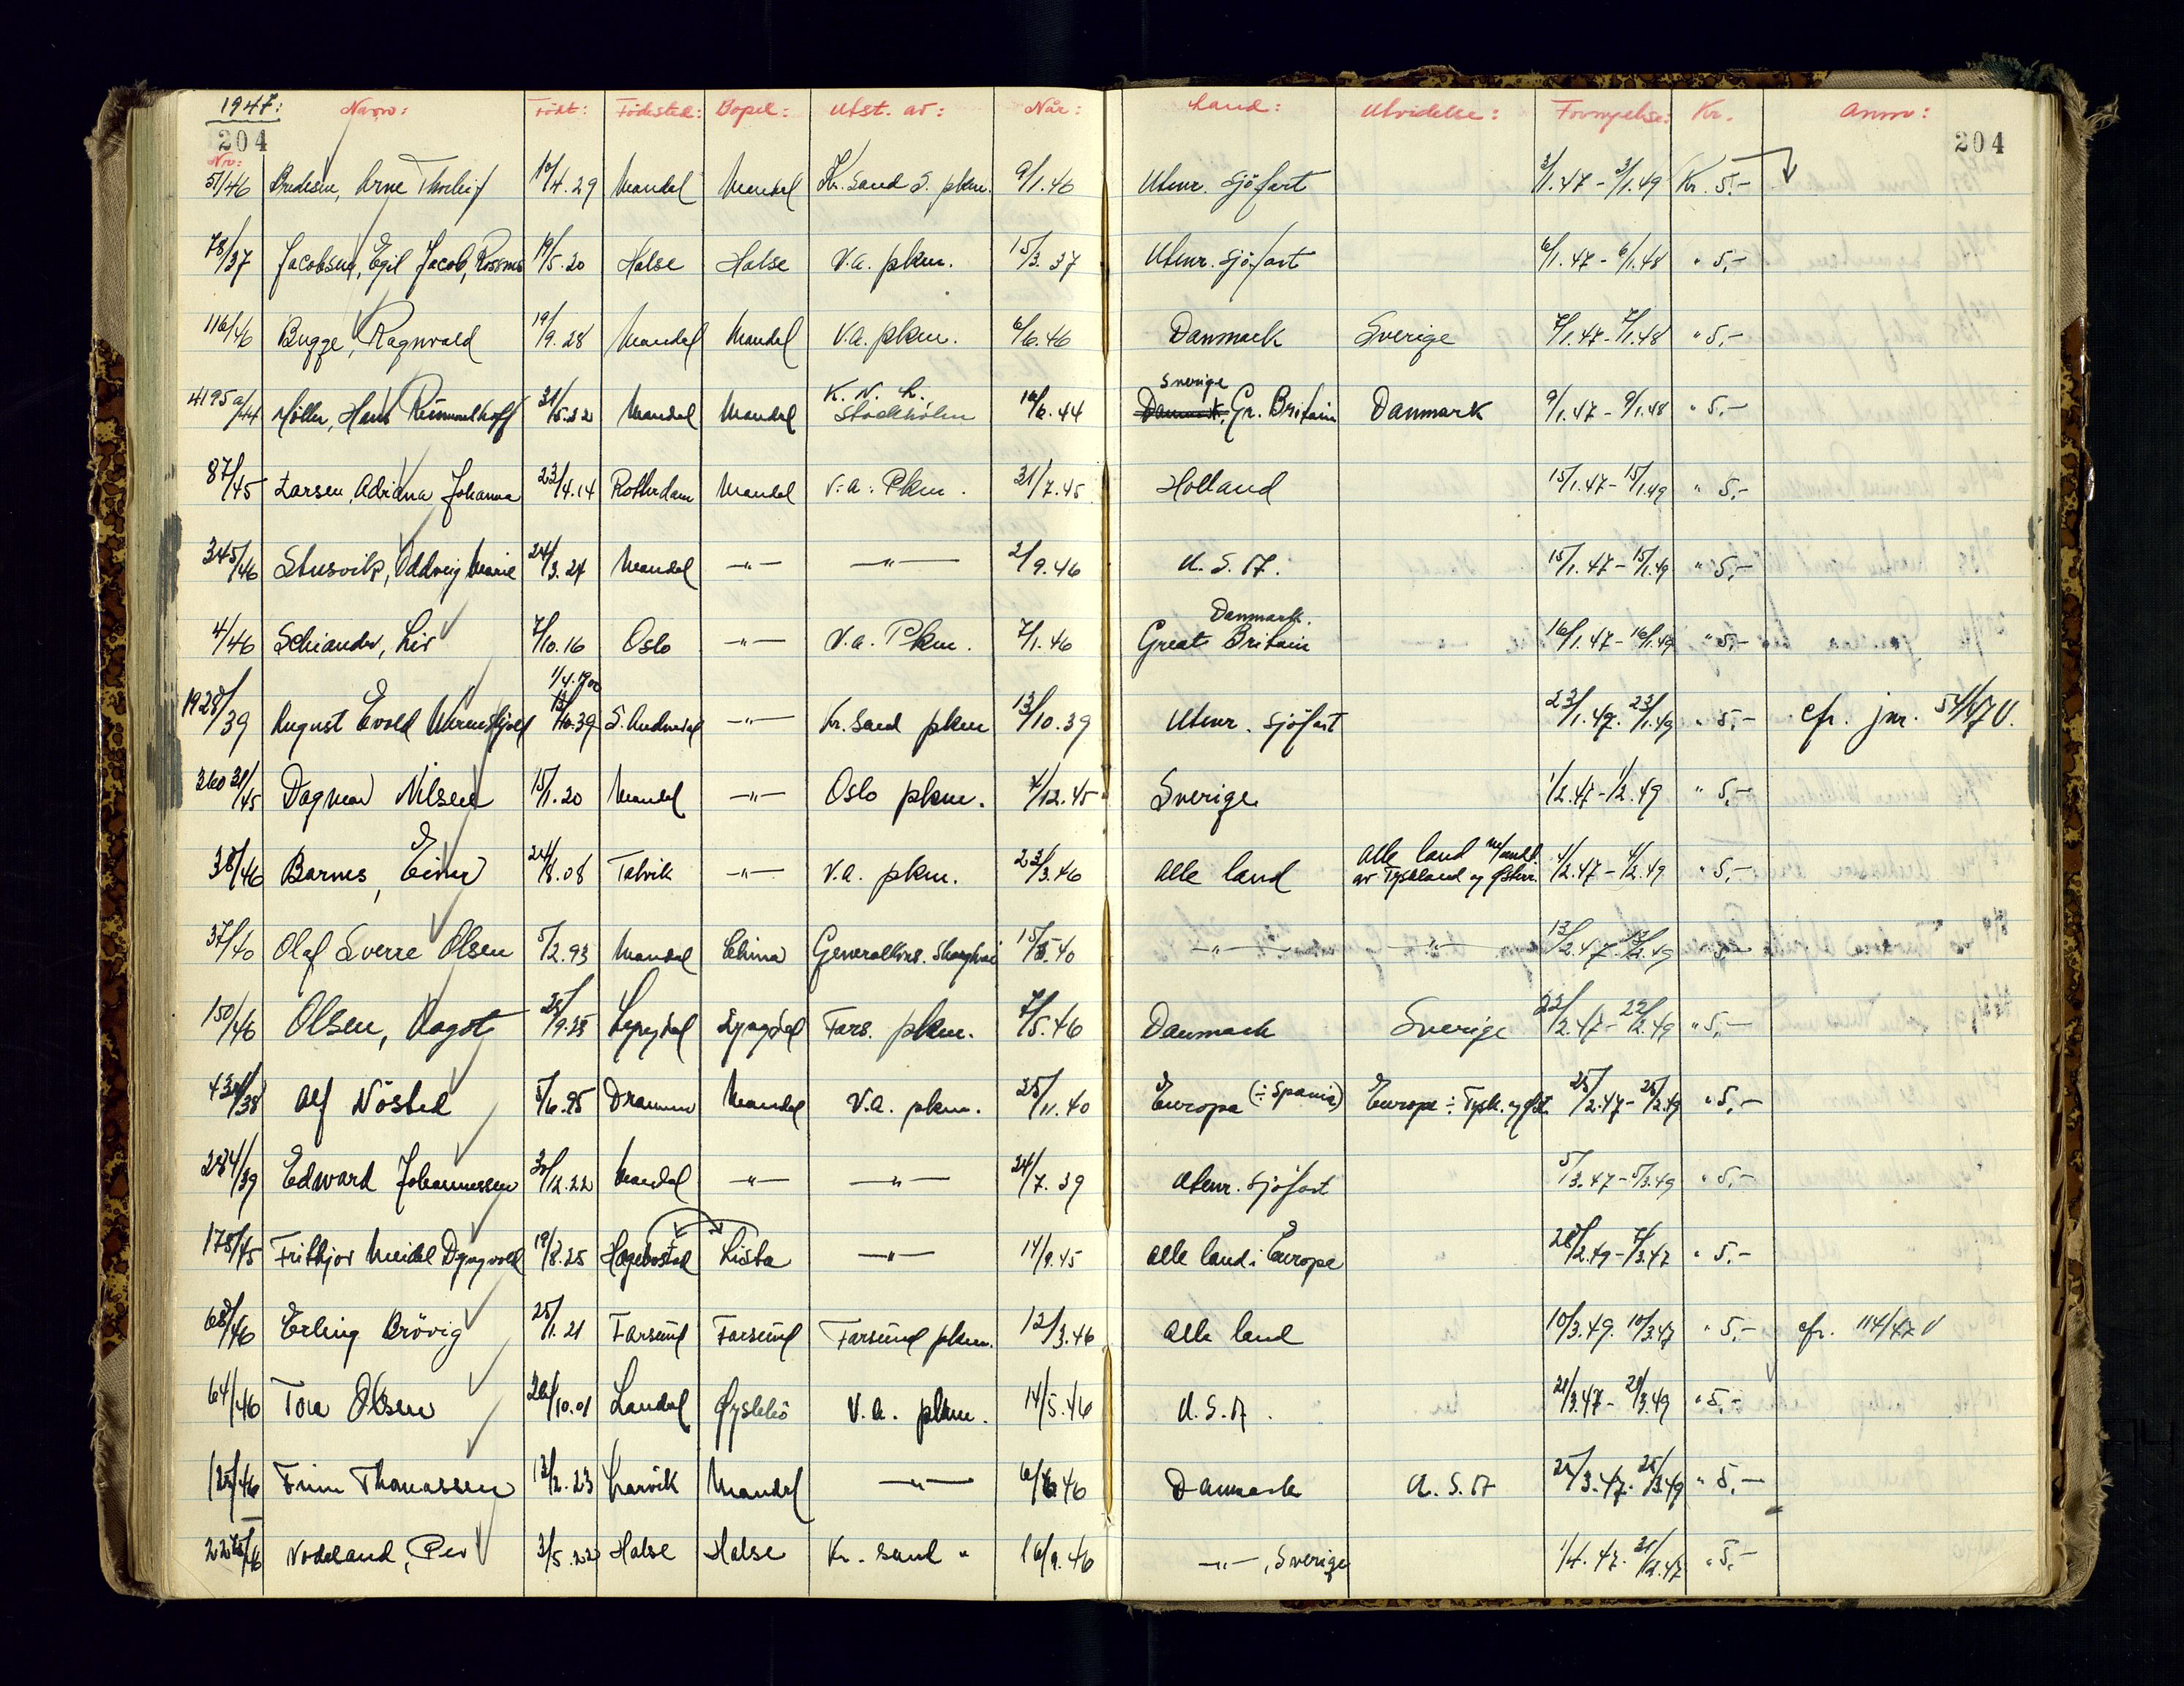 1947: Navn: Født: Fødested: Bopel: Utst. av: Når: Land: Utvidelse: Fornyelse: Kr. Anm:
204 204
Nr:
51/46 Arne Thorleif 10/4.29 Mandal Mandal Kr.sand S. pkm. 9/1.46 Utenr. sjøfart 3/1.47 - 3/1.49 Kr. 5.-
78/37 Jacobsen, Egil Jacob, 19/5.20 Halse Halse V.a. pkm. 15/3.37 Utenr. sjøfart 6/1.47 - 6/1.48 " 5,-
116/46 Bugge, Ragnvald 19/9.28 Mandal Mandal V.a. pkm. 6/6.46 Danmark Sverige 7/1.47 - 7/1.48 " 5,-
K. N. L. Sverige
4195a/44 Möller, Hans 31/5.22 Mandal Mandal Stockholm 16/6.44 Danmark, Gr. Britain Danmark 9/1.47 - 9/1.48 " 5,-
87/45 Larsen, Adriana Johanna 23/4.14 Rotterdam Mandal V.a. Pkm. 31/7.45 Holland 15/1.47 - 15/1.49 " 5,-
345/46 Stusvik, Oddveig Marie 24/3.24 Mandal -"- -"- 2/9.46 U.S.A. 15/1.47 - 15/1.49 " 5,-
Danmark.
4/46 Schiander, Liv 7/10.16 Oslo -"- V.a. Pkm. 7/1.46 Great Britain 16/1.47 - 16/1.49 " 5,-
1/4.1900
1928/39 August Evold 13/10.39 S. Audnedal -"- Kr.sand pkm 13/10.39 Utenr. sjøfart 23/1.47. 23/1.49 " 5,- cfr. jnr. 54/47 V.
36031/45 Dagmar Nilsen 15/1.20 Mandal -"- Oslo pkm. 4/12.45 Sverige 1/2.47 - 1/2.49 " 5,-
alle land m/unnt.
38/46 Barnes, Einar 24/8.08 Talvik -"- V.a. pkm. 23/3.46 alle land av Tyskland og Østerr. 4/2.47 - 4/2.49 " 5,-
37/40 Olaf Sverre Olsen 5/2.93 Mandal China Generalkons. Shanghai 15/8.40 -"- -"- 13/2.47. 13/2.49 " 5,-
150/46 Olsen, Aagot 28/9.25 Lyngdal Lyngdal Fars. pkm. 7/5.46 Danmark Sverige 22/2.47 - 22/2.49 " 5,-
434/38 Alf Nösted 5/6.95 Drammen Mandal V.a. pkm. 25/11.40 Europa (÷ Spania) Europa ÷ Tysk. og Øst. 25/2.47 - 25/2.49 " 5,-
284/39 Edward Johannessen 30/12.22 Mandal -"- -"- 24/7.39 Utenr. sjøfart " 5/3.47 - 5/3.49 " 5,-
175/45 Frithjov Meidel 19/8.25 Hægebostad Lista -"- 14/9.45 alle land i Europa " 28/2.49 - 7/3.47 " 5.-
68/46 Erling Brövig 25/1.21 Farsund Farsund Farsund pkm. 12/3.46 alle land " 10/3.49. 10/3.47 " 5,- cfr. 114/47 V
64/46 Tora Olsen 26/10.01 Laudal Øyslebö V.a. pkm. 14/5.46 U.S.A. 21/3.47 - 21/3.49 " 5,-
125/46 Finn Thomassen 13/2.23 Larvik Mandal -"- 6/6.46 Danmark U.S.A 25/3.47. 25/3.49 " 5,-
Nodeland, Per 3/5.22 Halse Halse Kr. sand " 16/9.46 -"-, Sverige 1/4.47. 31/12.47 " 5,-